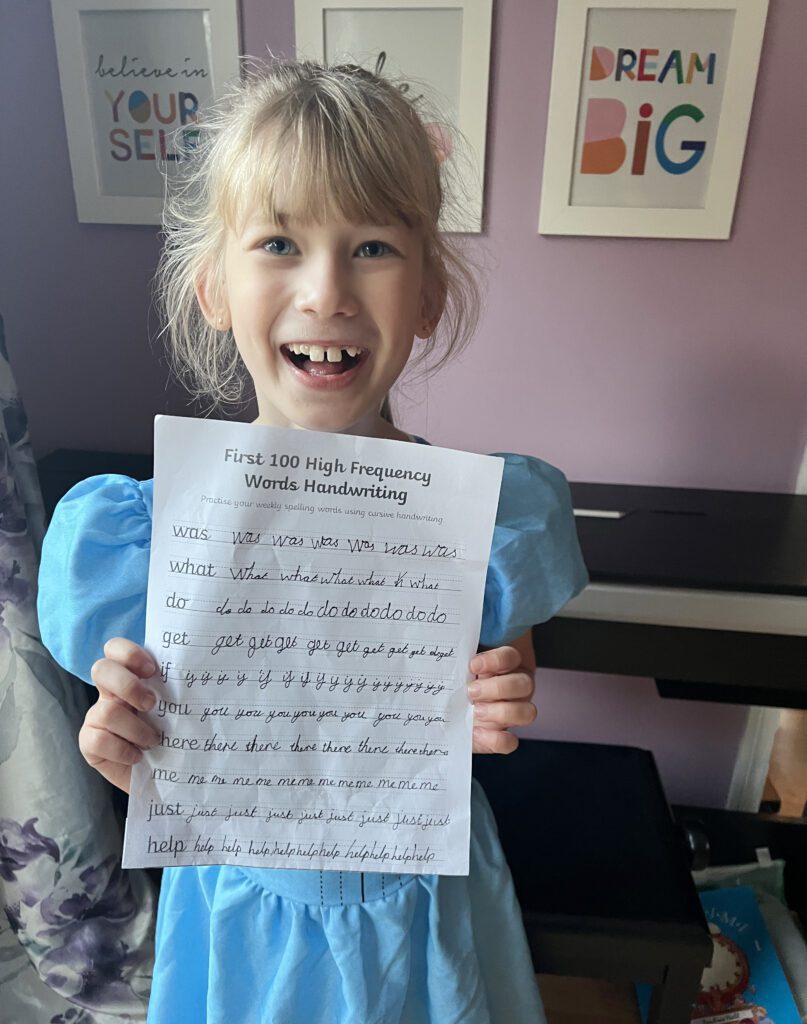 believe in
YOUR
SELF
be
DREAM
BiG
First 100 High Frequency
Words Handwriting
Practise your weekly spelling words using cursive handwriting
was was was was was was was
what what what what what h what
do do do do do do do do do do do do
get get get get get get get get get get
if if if if if if if if if if if if if if if if if if
you you you you you you you you you you
there there there there there there there there
me me me me me me me me me me me me
just just just just just just just just just
help help help help help help help help help help help